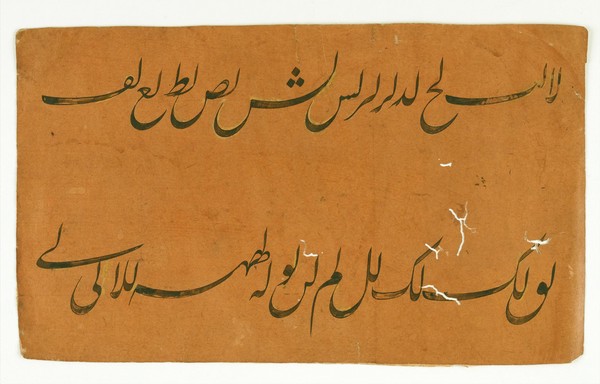 لا لب لح لد لر لر لس لش لص لط لع لف
لق لک لک لل لم لن لو له لهہ للا لی لے